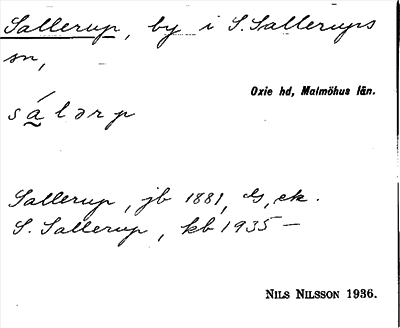 Sallerup, by i S. Sallerups
sn,
Oxie hd, Malmöhus län.
sálərp
Sallerup, jb 1881, ek.
S. Sallerup, kb 1935 —
NILS NILSSON 1936.